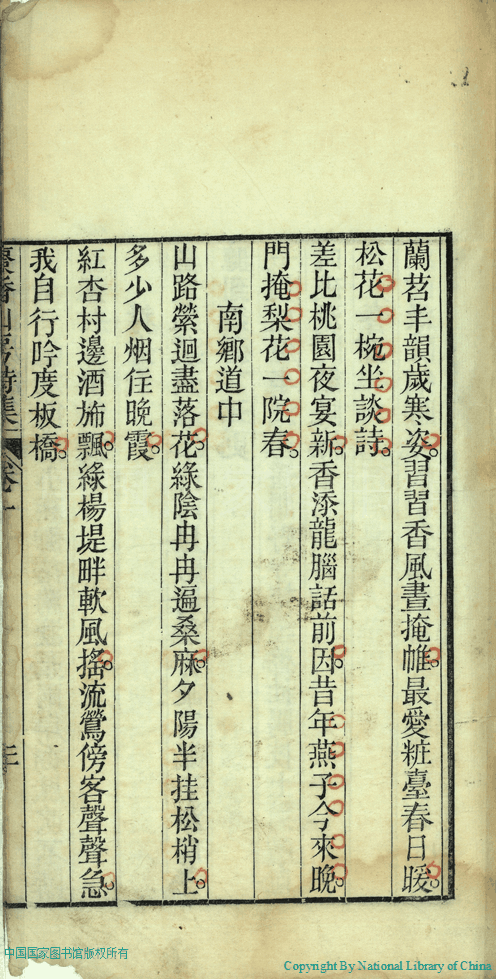 蘭茗丰韻歲寒姿習習香風晝掩帷最愛粧臺春日暖
松花一椀坐談詩
差比桃園夜宴新香添龍腦話前因昔年燕子今來晚
門掩梨花一院春
南鄉道中
山路縈迴盡落花綠陰冉冉遍桑麻夕陽半挂松梢上
多少人烟住晚霞
紅杏村邊酒斾飄綠楊堤畔軟風搖流鶯傍客聲聲急
我自行吟度板橋
香山房詩集
卷一
二
中国国家图书馆版权所有
Copyright By National Library of China